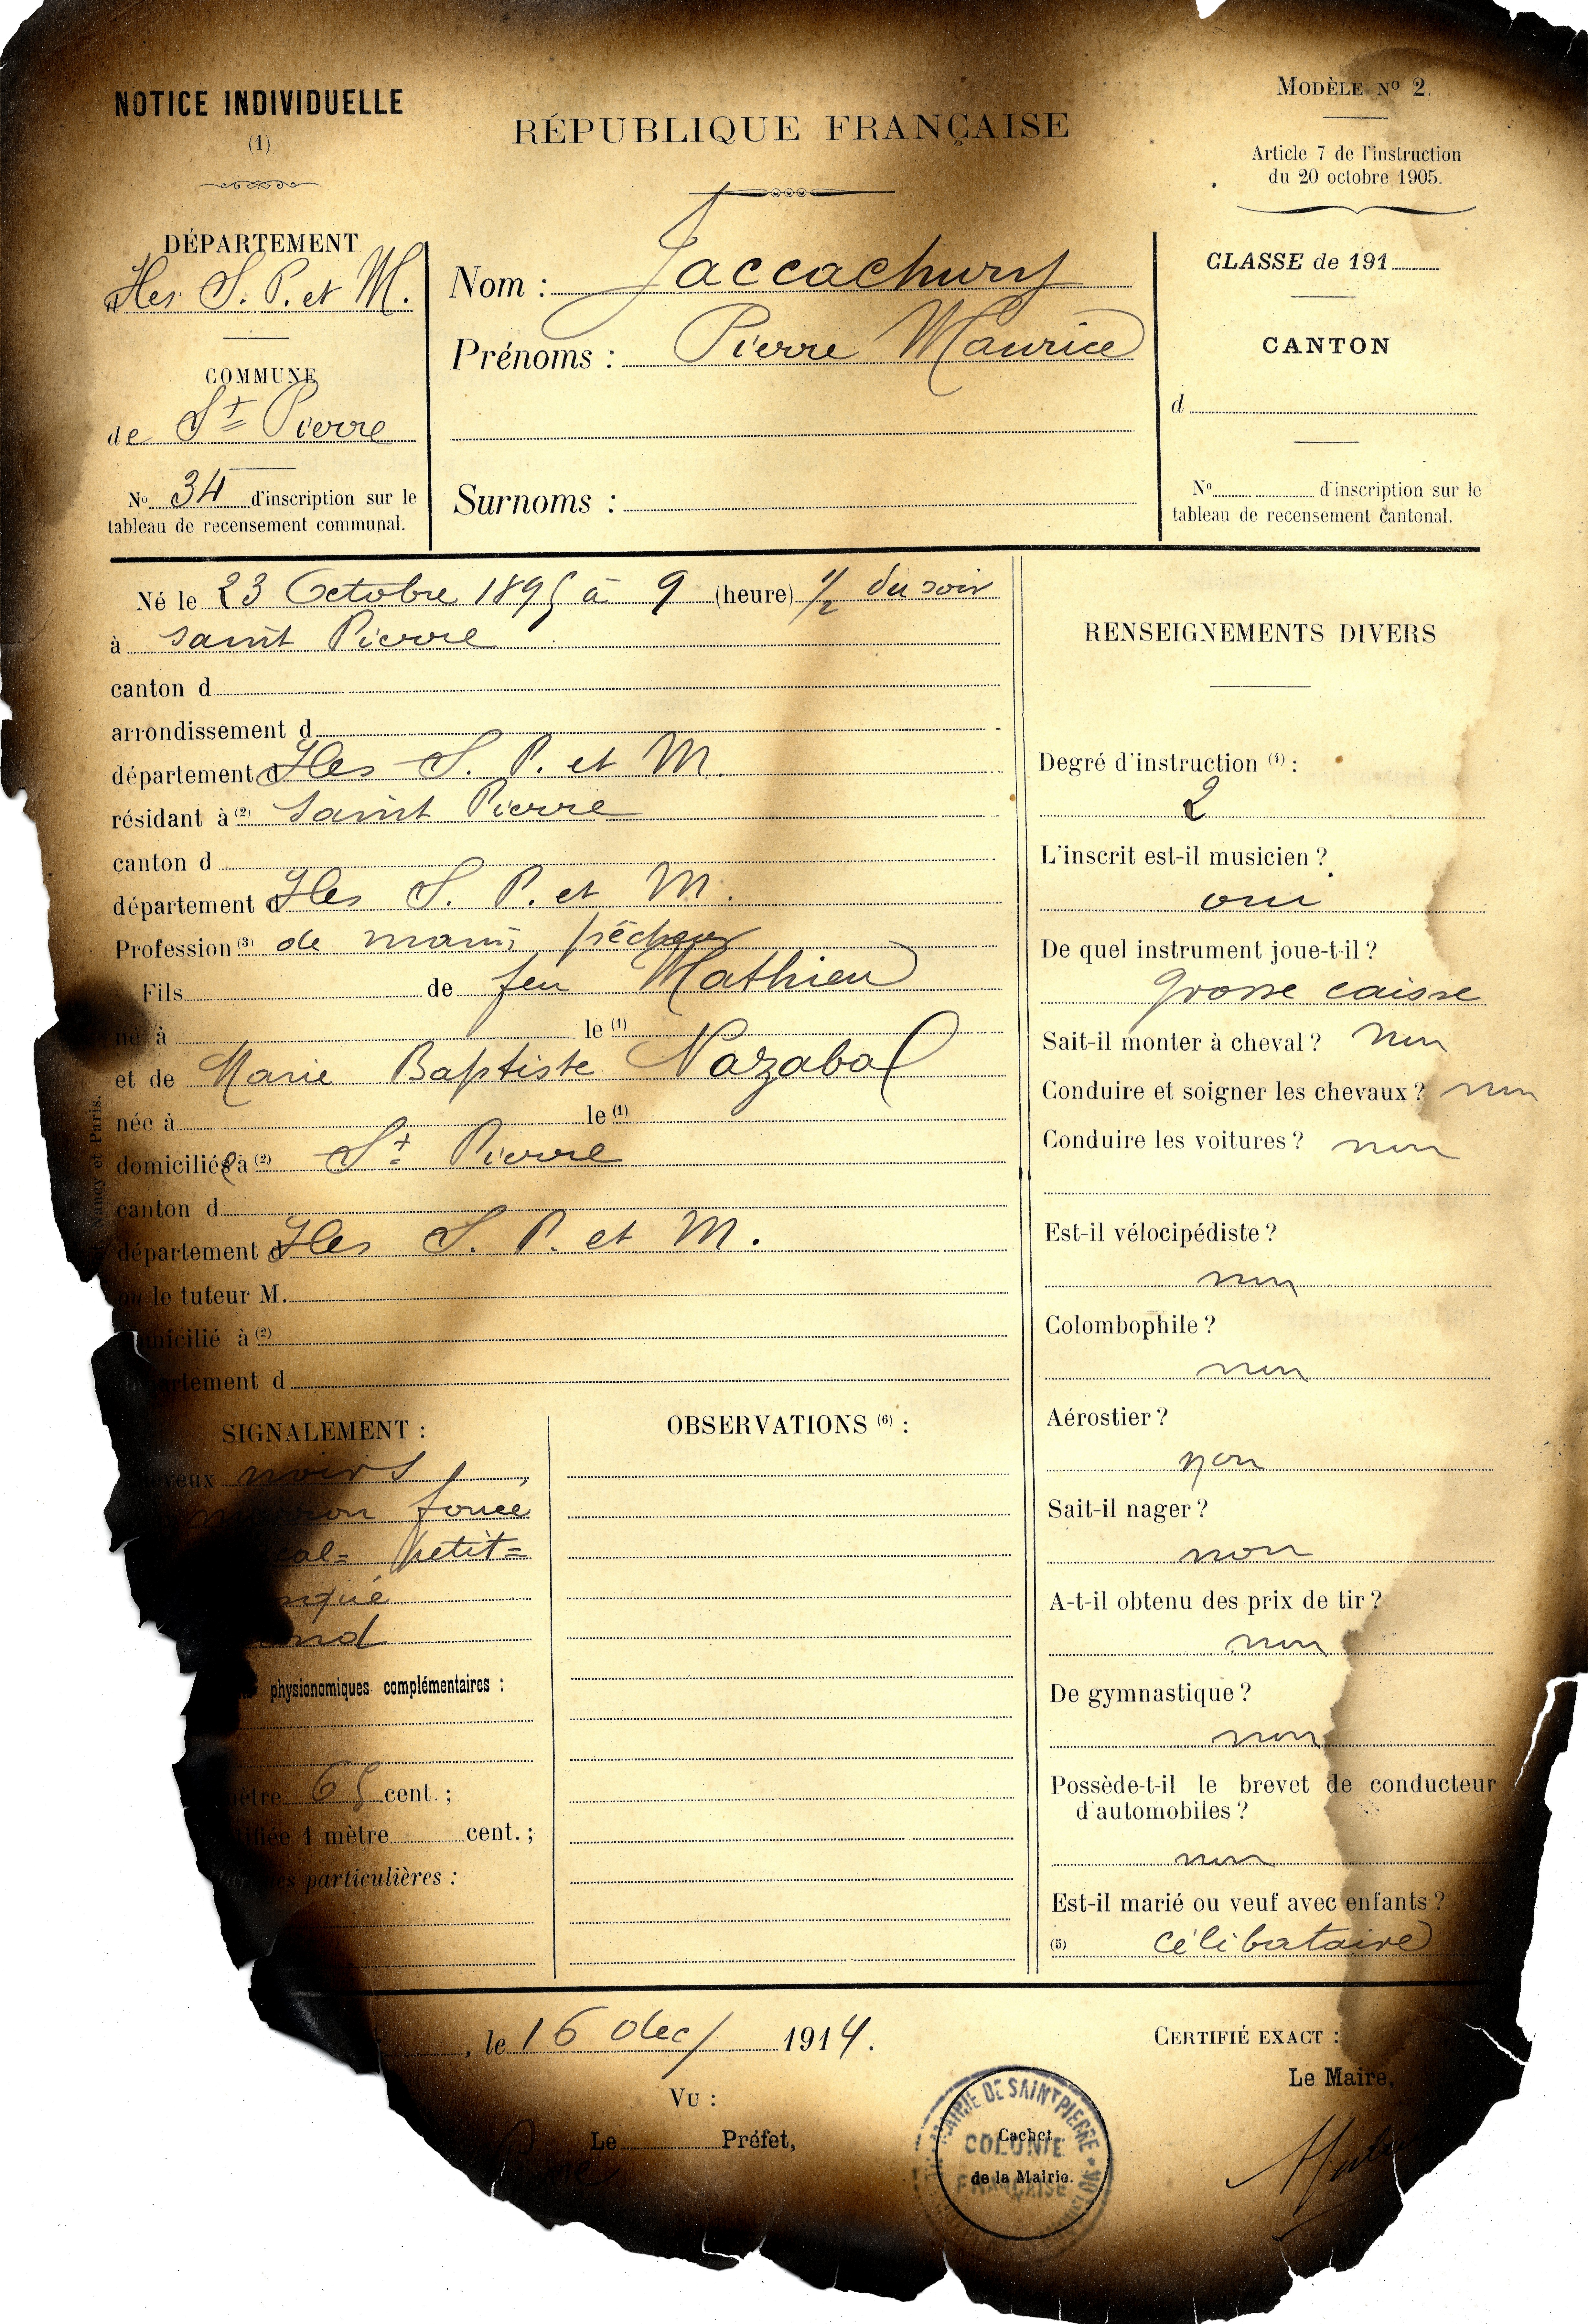 NOTICE INDIVIDUELLE
(1)
RÉPUBLIQUE FRANÇAISE
MODÈLE Nº 2.
Article 7 de l'instruction
du 20 octobre 1905.
DÉPARTEMENT
Iles S. P. et M.
COMMUNE
de St Pierre
Nº 34 d'inscription sur le
tableau de recensement communal.
Nom : Jaccachury
Prénoms : Pierre Maurice
Surnoms :
CLASSE de 191
CANTON
d
Nº d'inscription sur le
tableau de recensement cantonal.
Né le 23 Octobre 1895 à 9 (heure) 1/2 du soir
à Saint Pierre
canton d
arrondissement d
département d Iles S. P. et M.
résidant à (2) Saint Pierre
canton d
département d Iles S. P. et M.
Profession (3) de marin pêcheur
Fils de feu Mathieu
né à le (1)
et de Marie Baptiste Nazabal
née à le (1)
domiciliée à (2) St Pierre
canton d
département d Iles S. P. et M.
ou le tuteur M.
micilié à (2)
rtement d
Nancy et Paris.
SIGNALEMENT :
veux noirs
marron foncé
cal= petit=
nqué
ond
physionomiques complémentaires :
mètre 65 cent. ;
ifiée 1 mètre cent. ;
es particulières :
OBSERVATIONS (6) :
RENSEIGNEMENTS DIVERS
Degré d'instruction (4) :
2
L'inscrit est-il musicien ?
oui
De quel instrument joue-t-il ?
grosse caisse
Sait-il monter à cheval ? Non
Conduire et soigner les chevaux ? non
Conduire les voitures ? non
Est-il vélocipédiste ?
non
Colombophile ?
non
Aérostier ?
non
Sait-il nager ?
non
A-t-il obtenu des prix de tir ?
non
De gymnastique ?
non
Possède-t-il le brevet de conducteur
d'automobiles ?
non
Est-il marié ou veuf avec enfants ?
(5) célibataire
, le 16 dec/ 1914.
VU :
Le Préfet,
MAIRIE DE SAINT PIERRE
COLONIE
FRANÇAISE
Cachet
de la Mairie.
CERTIFIÉ EXACT :
Le Maire,